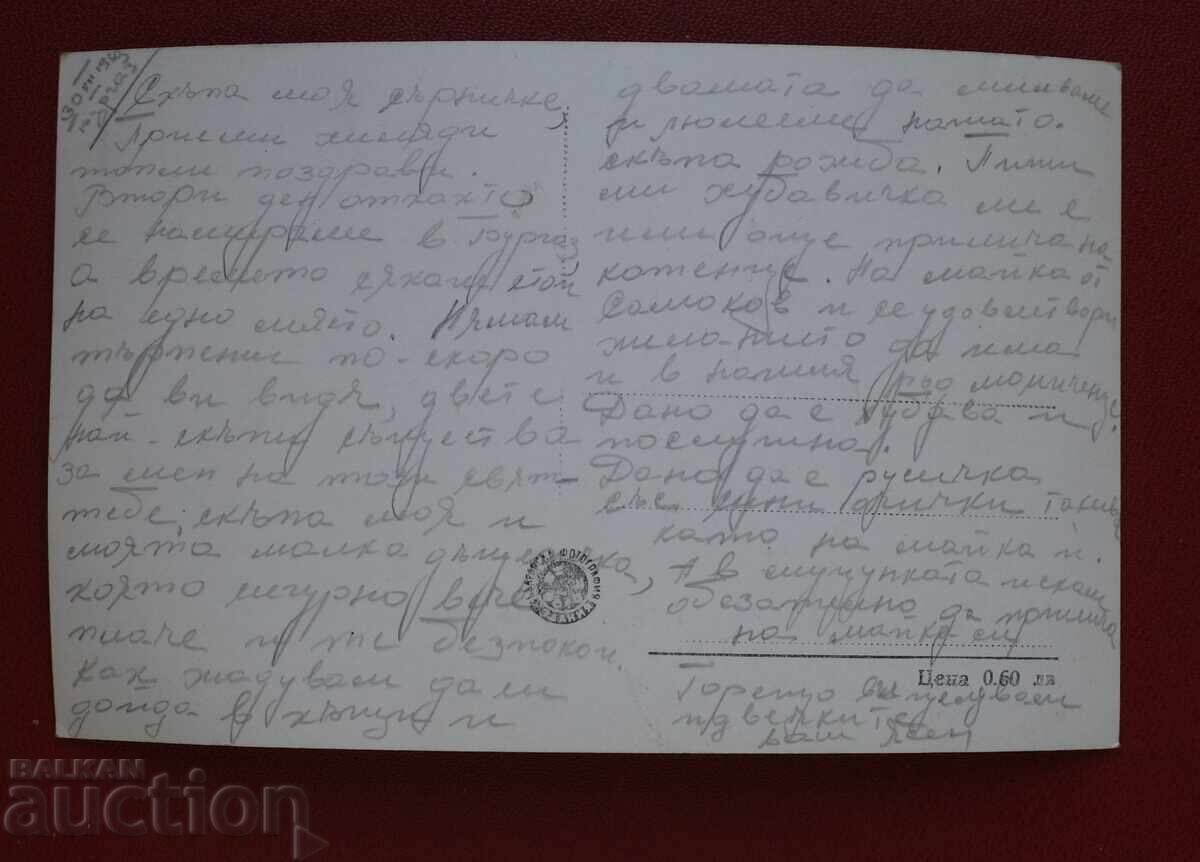 30 VII
Скъпа моя сърничке,
Приеми хиляди
топли поздрави.
Втори ден откакто
се намираме в Бургаз
а времето сякаш стои
на едно място. Нямам
търпение по-скоро
да ви видя, двете
най-скъпи същества
за мен на този свят
тебе, скъпа моя и
моята малка дъщеричка,
която сигурно вече
плаче и те безпокои.
Как жадувам да си
дойда в къщи и
двамата да милваме
и люлееме нашата
скъпа рожба. Пиши
ми хубавичка ли е
или още прилича на
котенце. На майка от
Самоков и се удовлетвори
желанието да има
и в нашия род момиченце.
Дано да е хубава и
послушна.
Дано да е русичка
със сини очички такива
като на майка и.
А в муцунката искам
обезателно да прилича
на майка си
Горещо ви целувам
и двечките
ваш
БЪЛГАРСКА ФОТОГРАФИЯ
Цена 0.60 лв
BALKAN
auction